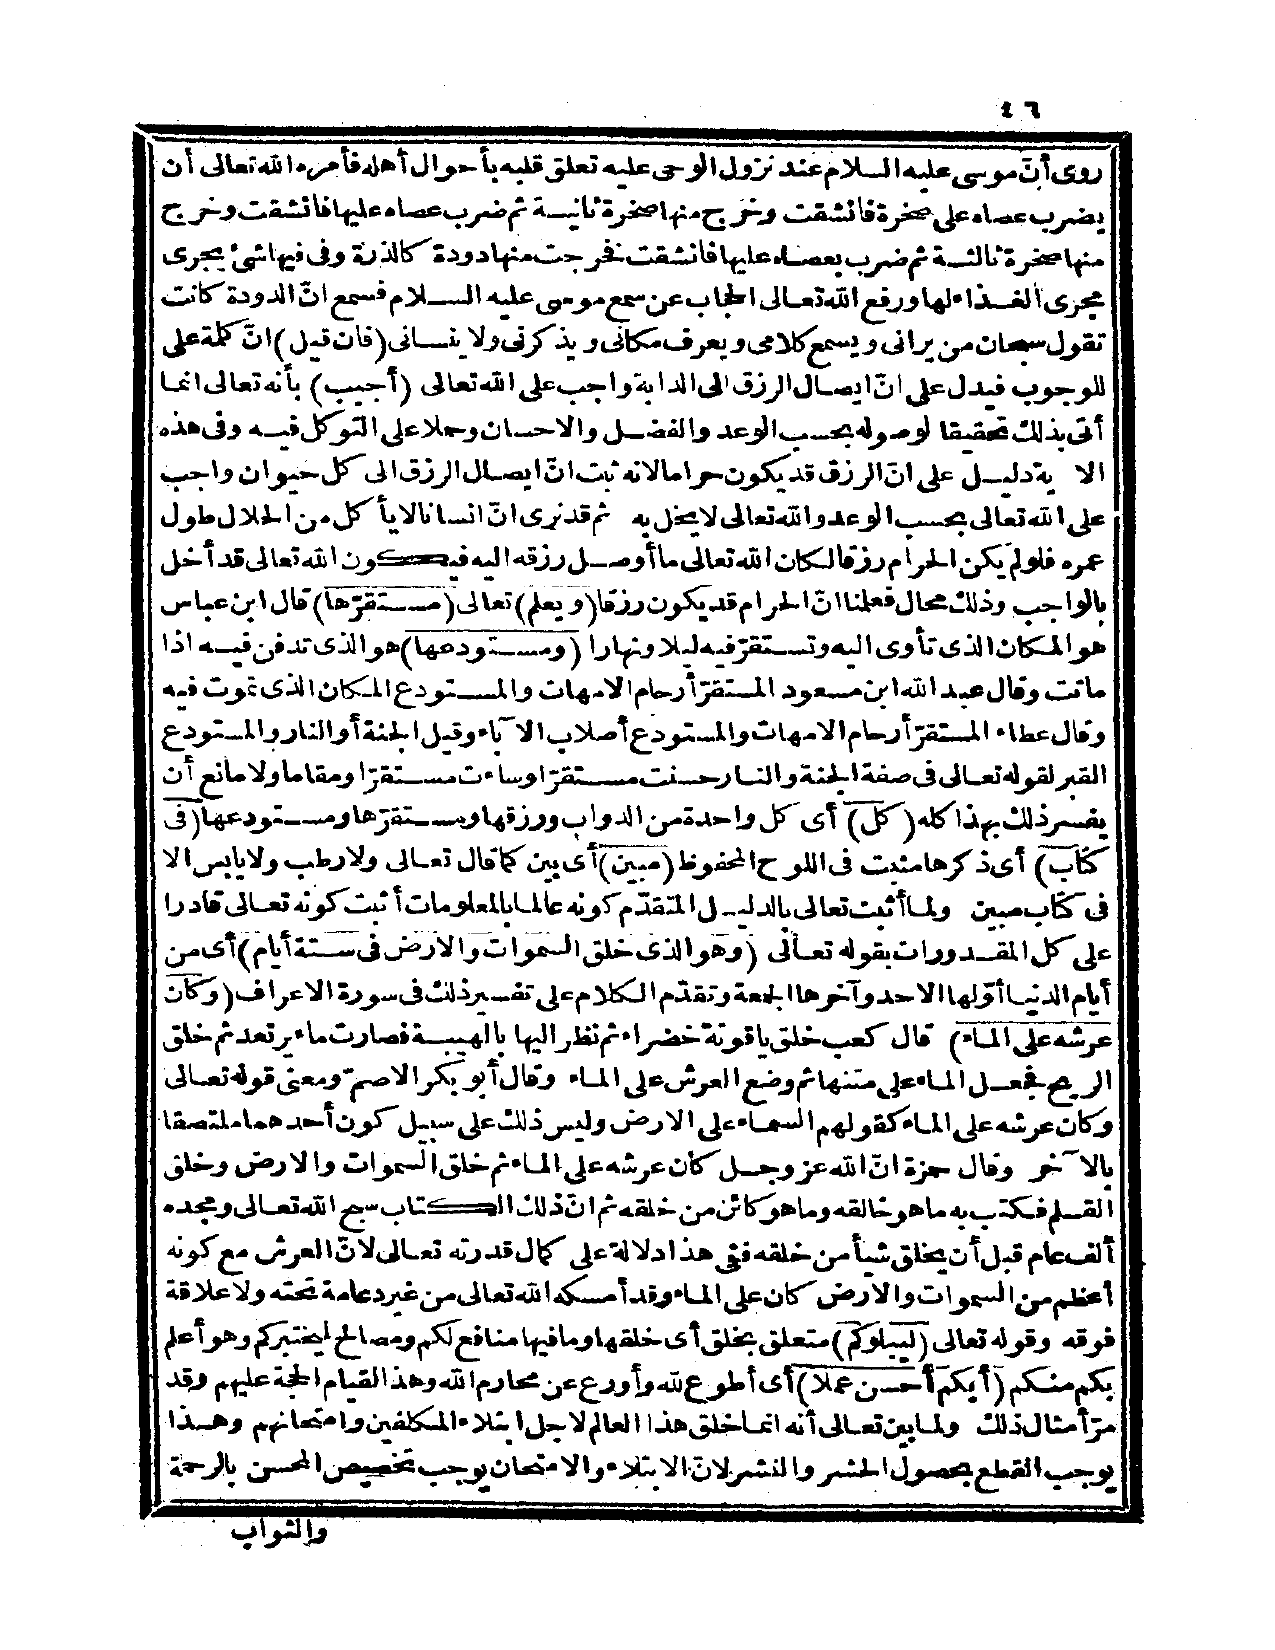 ٤٦
روى أنّ موسى عليه السلام عند نزول الوحى عليه تعلق قلبه بأحوال أهله فأمره الله تعالى أن
يضرب عصاه على صخرة فانشقت وخرج منها صخرة ثانية ثم ضرب عصاه عليها فانشقت وخرج
منها صخرة ثالثة ثم ضرب بعصاه عليها فانشقت فخرجت منها دودة كالذرة وفى فيها شئ يجرى
مجرى الغذاء لها ورفع الله تعالى الحجاب عن سمع موسى عليه السلام فسمع انّ الدودة كانت
تقول سبحان من يرانى ويسمع كلامى ويعرف مكانى ويذكرنى ولا ينسانى (فان قيل) انّ كلمة على
للوجوب فيدل على انّ ايصال الرزق الى الدابة واجب على الله تعالى (أجيب) بأنه تعالى انما
أتى بذلك تحقيقا لوصوله بحسب الوعد والفضل والاحسان وحملا على التوكل فيه وفى هذه
الا ية دليل على انّ الرزق قد يكون حراما لانه ثبت انّ ايصال الرزق الى كل حيوان واجب
على الله تعالى بحسب الوعد والله تعالى لا يخل به ثم قد نرى انّ انسانا لا يأكل من الحلال طول
عمره فلو لم يكن الحرام رزقا لكان الله تعالى ما أوصل رزقه اليه فيكون الله تعالى قد أخل
بالواجب وذلك محال فعلمنا انّ الحرام قد يكون رزقا (ويعلم) تعالى (مستقرّها) قال ابن عباس
هو المكان الذى تأوى اليه وتستقرّ فيه ليلا ونهارا (ومستودعها) هو الذى تدفن فيه اذا
ماتت وقال عبد الله ابن مسعود المستقرّ أرحام الامهات والمستودع المكان الذى تموت فيه
وقال عطاء المستقرّ أرحام الامهات والمستودع أصلاب الا ٓباء وقيل الجنة أو النار والمستودع
القبر لقوله تعالى فى صفة الجنة والنار حسنت مستقرّا وساءت مستقرّا ومقاما ولا مانع أن
يفسر ذلك بهذا كله (كل) أى كل واحدة من الدواب ورزقها ومستقرّها ومستودعها (فى
كتاب) أى ذكرها مثبت فى اللوح المحفوظ (مبين) أى بين كما قال تعالى ولا رطب ولا يابس الا
فى كتاب مبين ولما أثبت تعالى بالدليل المتقدّم كونه عالما بالمعلومات أثبت كونه تعالى قادرا
على كل المقدورات بقوله تعالى (وهو الذى خلق السموات والارض فى ستة أيام) أى من
أيام الدنيا أوّلها الاحد وآخرها الجمعة وتقدّم الكلام على تفسير ذلك فى سورة الاعراف (وكان
عرشه على الماء) قال كعب خلق ياقوتة خضراء ثم نظر اليها بالهيبة فصارت ماء يرتعد ثم خلق
الريح فجعل الماء على متنها ثم وضع العرش على الماء وقال أبو بكر الاصم ومعنى قوله تعالى
وكان عرشه على الماء كقولهم السماء على الارض وليس ذلك على سبيل كون أحدهما ملتصقا
بالا ٓخر وقال حمزة انّ الله عز وجل كان عرشه على الماء ثم خلق السموات والارض وخلق
القلم فكتب به ما هو خالقه وما هو كائن من خلقه ثم انّ ذلك الكتاب سبح الله تعالى ومجده
ألف عام قبل أن يخلق شيأ من خلقه ففى هذا دلالة على كمال قدرته تعالى لانّ العرش مع كونه
أعظم من السموات والارض كان على الماء وقد أمسكه الله تعالى من غير دعامة تحته ولا علاقة
فوقه وقوله تعالى (ليبلوكم) متعلق بخلق أى خلقها وما فيها منافع لكم ومصالح ليختبركم وهو أعلم
بكم منكم (أيكم أحسن عملا) أى أطوع لله وأورع عن محارم الله وهذا القيام الحجة عليهم وقد
مرّ أمثال ذلك ولما بين تعالى أنه انما خلق هذا العالم لاجل ابتلاء المكلفين وامتحانهم وهذا
يوجب القطع بحصول الحشر والنشر لانّ الابتلاء والامتحان يوجب تخصيص المحسن بالرحمة
والثواب